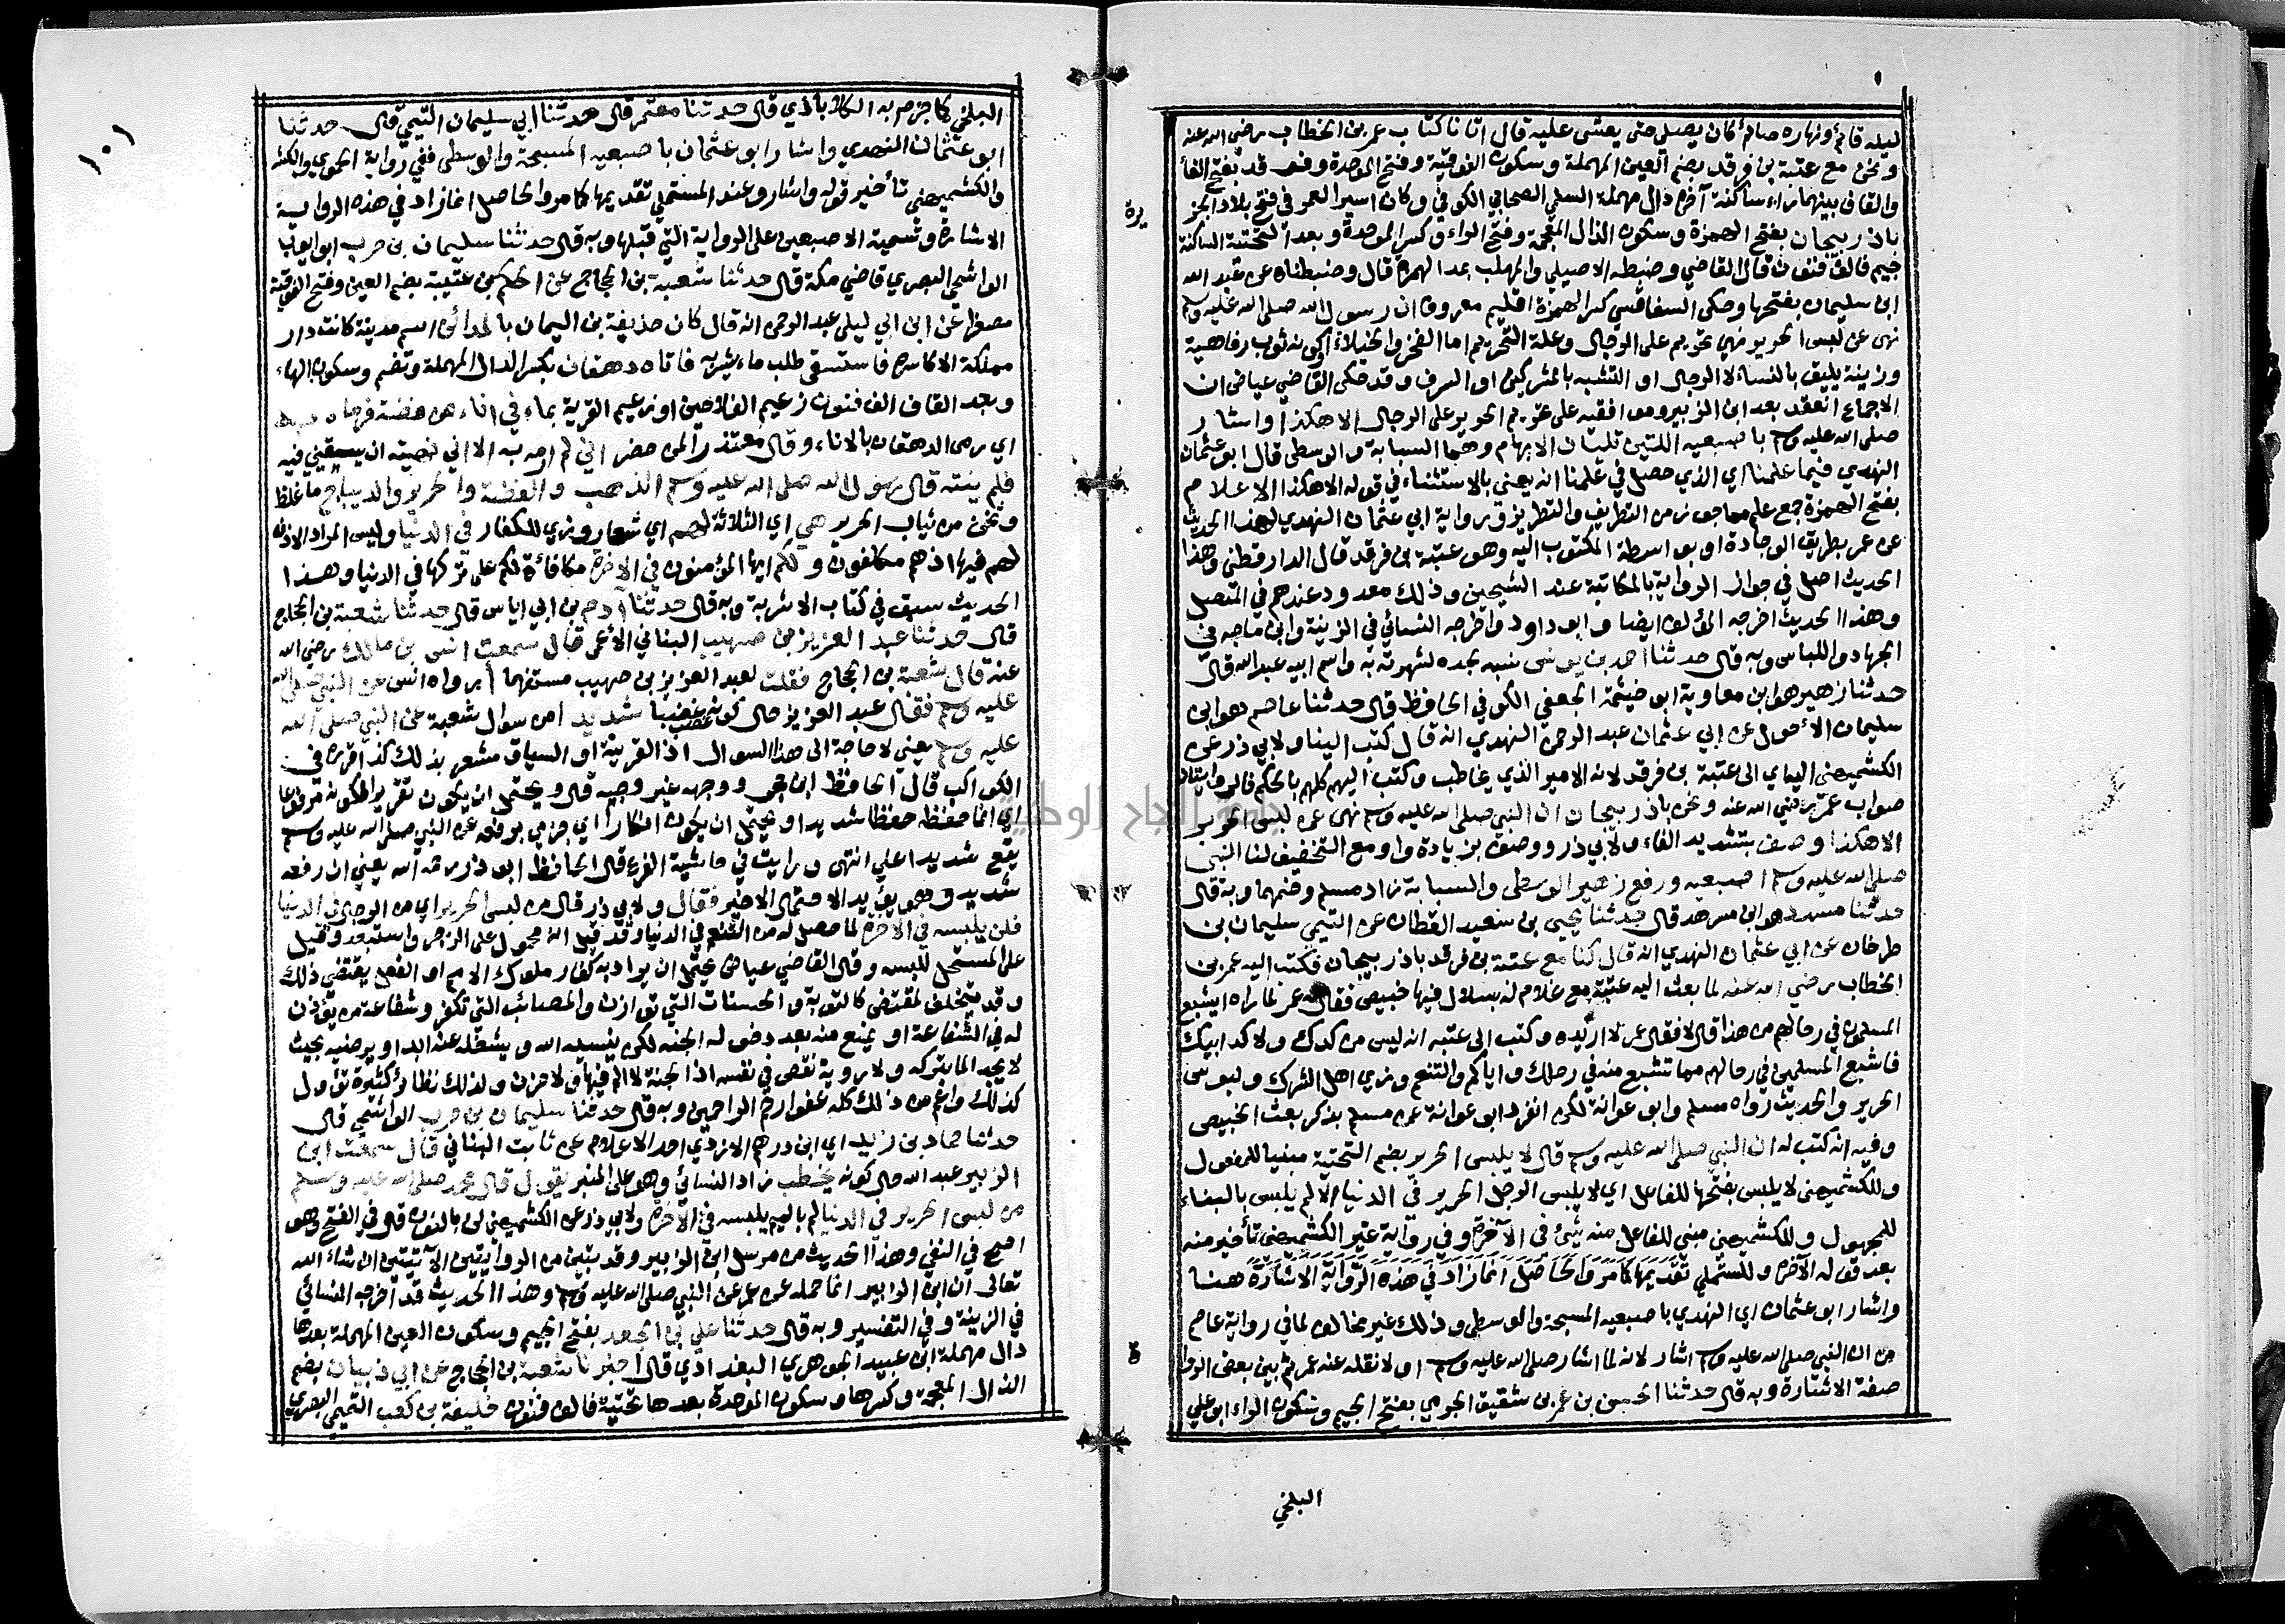 ليله قائم ونهاره صائم كان يصلي حتى يغشى عليه قال اتانا كتاب عمر بن الخطاب رضي الله عنه
ونحن مع عتبة بن فرقد بضم العين المهملة وسكون الفوقية وفتح الموحدة وفرقد بفتح الفاء
والقاف بينهما راء ساكنة آخره دال مهملة السلمي الصحابي الكوفي وكان اميرا لعمر في فتح بلاد الجز
يرة
باذربيجان بفتح الهمزة وسكون الذال المعجمة وفتح الراء وكسر الموحدة وبعد التحتية الساكنة
جيم فالف فنون قال القاضي وضبطه الاصيلي والمهلب بمد الهمزة قال وضبطناه عن عبد الله
ابن سليمان بفتحها وحكى السفاقسي كسر الهمزة اقليم معروف ان رسول الله صلى الله عليه وسلم
نهى عن لبس الحرير نهي تحريم على الرجال وعلة التحريم اما الفخر والخيلاء او كونه ثوب رفاهية
وزينة يليق بالنساء لا الرجال او التشبه بالمشركين او السرف وقد حكى القاضي عياض ان
الاجماع انعقد بعد ابن الزبير وموافقيه على تحريم الحرير على الرجال الا هكذا واشار
صلى الله عليه وسلم باصبعيه اللتين تليان الابهام وهما السبابة والوسطى قال ابو عثمان
النهدي فيما علمنا اي الذي حصل في علمنا انه يعني بالاستثناء في قوله الا هكذا الاعلام
بفتح الهمزة جمع علم مما جوز من التطريف والتطريز ورواية ابي عثمان النهدي لهذا الحديث
عن عمر بطريق الوجادة او بواسطة المكتوب اليه وهو عتبة بن فرقد قال الدارقطني وهذا
الحديث اصل في جواز الرواية بالمكاتبة عند الشيخين وذلك معدود عندهم في المتصل
وهذا الحديث اخرجه المؤلف ايضا وابو داود واخرجه النسائي في الزينة وابن ماجه في
الجهاد واللباس وبه قال حدثنا احمد بن يونس نسبه لجده لشهرته به واسم ابيه عبد الله قال
حدثنا زهير هو ابن معاوية ابو خيثمة الجعفي الكوفي الحافظ قال حدثنا عاصم هو ابن
سليمان الأحول عن ابي عثمان عبد الرحمن النهدي انه قال كتب الينا ولابي ذر عن
الكشميهني اليه اي الى عتبة بن فرقد لانه الامير الذي يخاطب وكتب اليهم كلهم بالحكم فالروايتان
صواب عمر رضي الله عنه ونحن باذربيجان ان النبي صلى الله عليه وسلم نهى عن لبس الحرير
الا هكذا وصف بتشديد الفاء ولابي ذر ووصف بزيادة واو مع التخفيف لنا النبي
صلى الله عليه وسلم اصبعيه ورفع زهير الوسطى والسبابة زاد مسلم وضمهما وبه قال
حدثنا مسدد هو ابن مسرهد قال حدثنا يحيى بن سعيد القطان عن التيمي سليمان بن
طرخان عن ابي عثمان النهدي انه قال كنا مع عتبة بن فرقد باذربيجان فكتب اليه عمر بن
الخطاب رضي الله عنه لما بعث اليه عتبة مع غلام له بسلال فيها خبيص فقال له عمر لما رآه ايشبع
المسلمون في رحالهم من هذا قال لا فقال عمر لا اريده وكتب الى عتبة انه ليس من كدك ولا كد ابيك
فاشبع المسلمين في رحالهم مما تشبع منه في رحلك واياكم والتنعم وزي اهل الشرك ولبوس
الحرير والحديث رواه مسلم وابو عوانة لكن انفرد ابو عوانة عن مسلم بذكر بعث الخبيص
وفيه انه كتب له ان النبي صلى الله عليه وسلم قال لا يلبس الحرير بضم التحتية مبنيا للمفعول
وللكشميهني لا يلبس بفتحها للفاعل اي لا يلبس الرجل الحرير في الدنيا الا لم يلبس بالبناء
للمجهول وللكشميهني مبني للفاعل منه شئ في الآخرة وفي رواية غير الكشميهني تأخير منه
بعد قوله الآخرة وللمستملي تقديمها كما مر والحاصل انما زاد في هذه الرواية الاشارة هنا
واشار ابو عثمان اي النهدي باصبعيه المسبحة والوسطى وذلك غير مخالف لما في رواية عاصم
من ان النبي صلى الله عليه وسلم اشار لانه لما اشار صلى الله عليه وسلم اولا نقله عنه عمر ثم بين بعض الروا
ة
صفة الاشارة وبه قال حدثنا الحسن بن عمر بن شقيق الجرمي بفتح الجيم وسكون الراء ابو علي
البلخي
١٠١
البلخي كما جزم به الكلاباذي قال حدثنا معتمر قال حدثنا ابي سليمان التيمي قال حدثنا
ابو عثمان النهدي واشار ابو عثمان باصبعيه المسبحة والوسطى ففي رواية الحموي
والكشميهني تأخير قوله واشار وعند المستملي تقديمها كما مر والحاصل انما زاد في هذه الرواية
الاشارة وتسمية الاصبعين على الرواية التي قبلها وبه قال حدثنا سليمان بن حرب ابو ايوب
الواشحي البصري قاضي مكة قال حدثنا شعبة بن الحجاج عن الحكم بن عتيبة بضم العين وفتح الفوقية
مصغرا عن ابن ابي ليلى عبد الرحمن انه قال كان حذيفة بن اليمان بالمدائن اسم مدينة كانت دار
مملكة الاكاسرة فاستسقى طلب ماء يشربه فاتاه دهقان بكسر الدال المهملة وتضم وسكون الهاء
وبعد القاف الف فنون زعيم الفلاحين او زعيم القرية بماء في اناء من فضة فرماه به
اي رمى الدهقان بالاناء وقال معتذرا لمن حضر اني لم ارمه به الا اني نهيته ان يسقيني فيه
فلم ينته قال رسول الله صلى الله عليه وسلم الذهب والفضة والحرير والديباج ما غلظ
وثخن من ثياب الحرير هي اي الثلاثة لهم اي شعار وزي للكفار في الدنيا وليس المراد الاذن
لهم فيها اذ هم مكلفون ولكم ايها المؤمنون في الآخرة مكافأة لكم على تركها في الدنيا وهذا
الحديث سبق في كتاب الاشربة وبه قال حدثنا آدم بن ابي اياس قال حدثنا شعبة بن الحجاج
قال حدثنا عبد العزيز بن صهيب البناني الأعمى قال سمعت انس بن مالك رضي الله
عنه قال شعبة بن الحجاج فقلت لعبد العزيز بن صهيب مستفهما أرواه انس عن النبي صلى الله
عليه وسلم فقال عبد العزيز حال كونه غضب غضبا شديدا من سوال شعبة عن النبي صلى الله
عليه وسلم يعني لا حاجة الى هذا السوال اذ القرينة او السياق مشعر بذلك كذا قرره في
الكواكب قال الحافظ ابن حجر ووجهه غير وجيه قال ويحتمل ان يكون تقريرا لكونه مرفوعا
اي انما حفظه حفظا شديدا ويحتمل ان يكون انكارا اي جزمي برفعه عن النبي صلى الله عليه وسلم
يقع شديدا علي انتهى ورأيت في حاشية الفرع قال الحافظ ابو ذر رحمه الله يعني ان رفعه
شديد وهو يؤيد الاحتمال الاخير فقال ولابي ذر قال من لبس الحرير اي من الرجال في الدنيا
فلن يلبسه في الآخرة لما حصل له من التنعم في الدنيا وقد قيل انه محمول على الزجر واستبعد وقيل
على المستحل للبسه وقال القاضي عياض يحتمل ان يراد به كفار ملوك الامم او الفعل يقتضي ذلك
وقد يتخلف لمقتض كالتوبة والحسنات التي توازن والمصائب التي تكفر وشفاعة من يؤذن
له في الشفاعة او يمنع منه بعد دخوله الجنة لكن ينسيه الله ويشغله عنه ابدا ويرضيه بحيث
لا يجد الما بتركه ولا رؤية نقص في نفسه اذ الجنة لا الم فيها ولا حزن ولذلك نظائر كثيرة تؤول
كذلك واعم من ذلك كله عفو ارحم الراحمين وبه قال حدثنا سليمان بن حرب الواشحي قال
حدثنا حماد بن زيد اي ابن درهم الازدي احد الاعلام عن ثابت البناني قال سمعت ابن
الزبير عبد الله حال كونه يخطب زاد النسائي وهو على المنبر يقول قال محمد صلى الله عليه وسلم
من لبس الحرير في الدنيا لم بالميم يلبسه في الآخرة ولابي ذر عن الكشميهني لن بالنون قال في الفتح وهو
اصح في النفي وهذا الحديث من مرسل ابن الزبير وقد تبين من الروايتين الآتيتين ان شاء الله
تعالى ان ابن الزبير انما حمله عن عمر عن النبي صلى الله عليه وسلم وهذا الحديث قد اخرجه النسائي
في الزينة وفي التفسير وبه قال حدثنا علي بن الجعد بفتح الجيم وسكون العين المهملة بعدها
دال مهملة ابن عبيد الجوهري البغدادي قال اخبرنا شعبة بن الحجاج عن ابي ذبيان بضم
الذال المعجمة وكسرها وسكون الموحدة بعدها تحتية فالف فنون خليفة بن كعب التميمي البصري